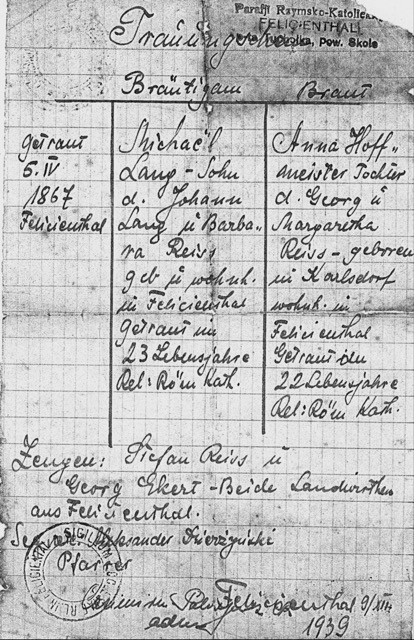 Parafji Raymsko-Katolicka
FELICIENTHAL
Tucholka, pow. Skole
Trauungsschein
Bräutigam
Braut
Getraut
5. IV
1867
Felicienthal
Michaël
Lang - Sohn
d. Johann
Lang u Barba-
ra Reiss
geb u wohnh.
in Felicienthal
Getraut im
23 Lebensjahre
Rel: Röm Kath.
Anna Hoff„
meister Tochter
d. Georg u
Margaretha
Reiss - geboren
in Karlsdorf
wohnh. in
Felicienthal
Getraut im
22 Lebensjahre
Rel: Röm Kath.
Zeugen: Stefan Reiss u
Georg Ekert - Beide Landwirthen
aus Felicienthal.
Aleksander Kierzyński
Pfarrer
SIGILLUM
Felicienthal 9/XII
1939